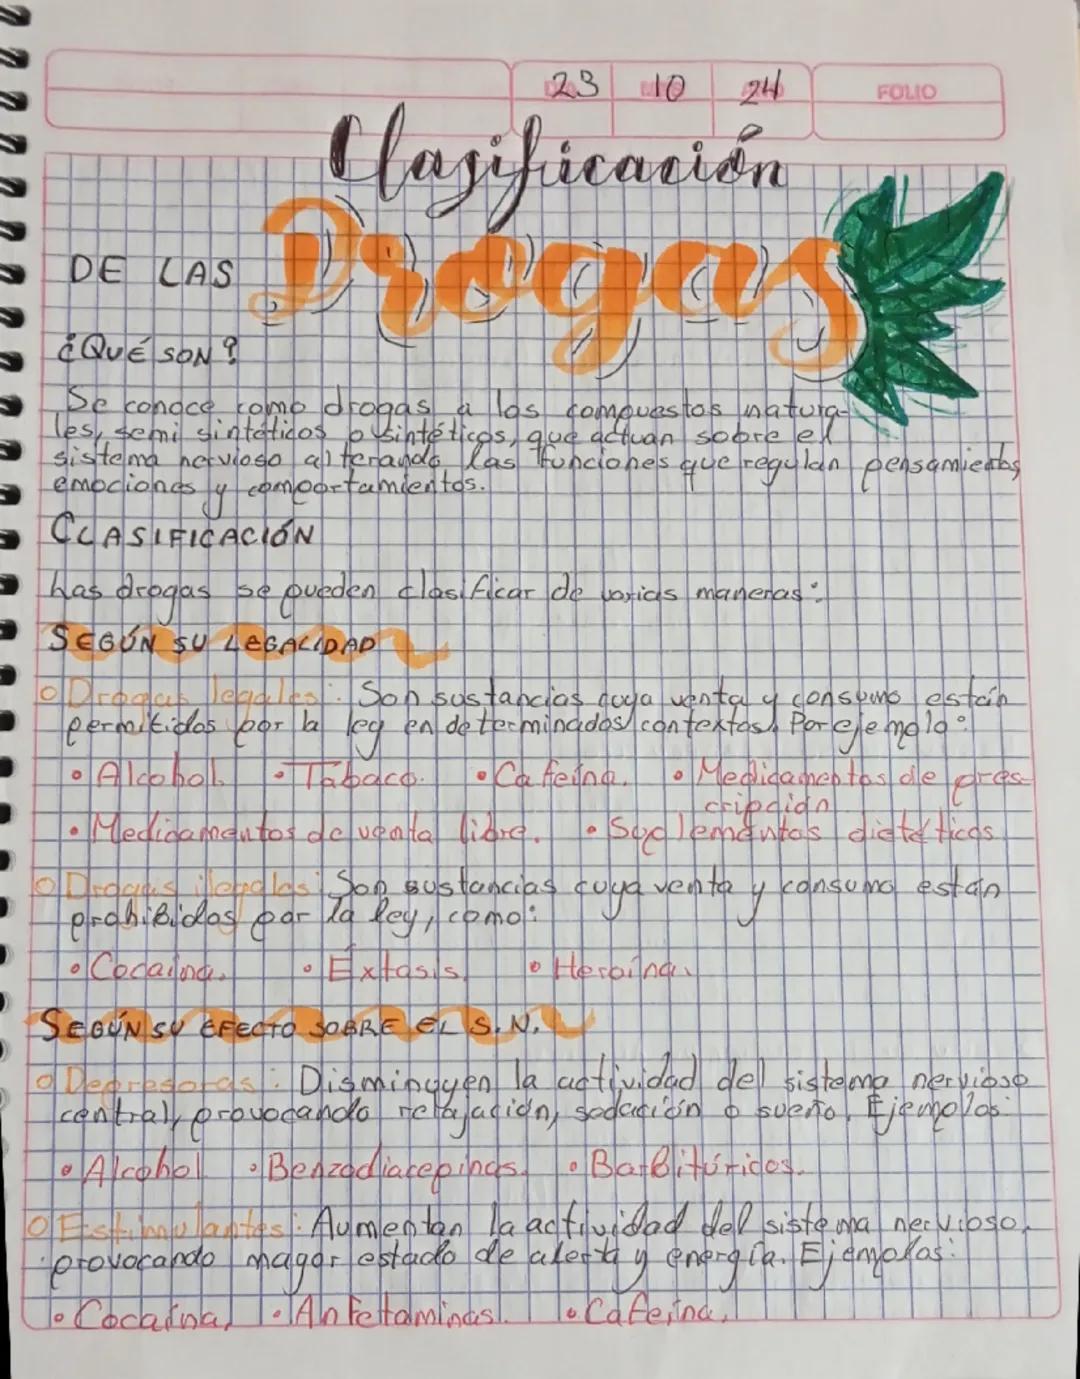 23 10 24 FOLIO
Clasificación
DE LAS Drogas
¿QUÉ SON?
Se conoce como drogas a los compuestos natura-
les, semi sintéticos o sintéticos, que actúan sobre el
sistema nervioso alterando las funciones que regulan pensamientos
emociones y comportamientos.
CLASIFICACIÓN
Las drogas se pueden clasificar de varias maneras:
SEGÚN SU LEGALIDAD
Drogas legales: Son sustancias cuya venta y consumo están
permitidos por la ley en determinados contextos. Por ejemplo:
• Alcohol. • Tabaco. • Cafeína. • Medicamentos de pres-
cripción
• Medicamentos de venta libre. • Suplementos dietéticos
Drogas ilegales: Son sustancias cuya venta y consumo están
prohibidos por la ley, como:
• Cocaína. • Éxtasis. • Heroína.
SEGÚN SU EFECTO SOBRE EL S.N.
Depresoras: Disminuyen la actividad del sistema nervioso
central, provocando relajación, sedación o sueño. Ejemplos:
• Alcohol • Benzodiacepinas. • Barbitúricos.
Estimulantes: Aumentan la actividad del sistema nervioso,
provocando mayor estado de alerta y energía. Ejemplos:
• Cocaína. • Anfetaminas. • Cafeína.